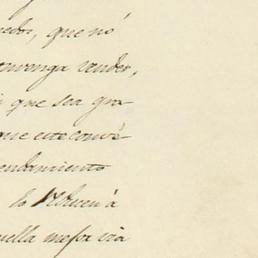 nedor, que nó
convenga vender,
que sea gra-
que este convê-
endamiento
lo
uella mejor via